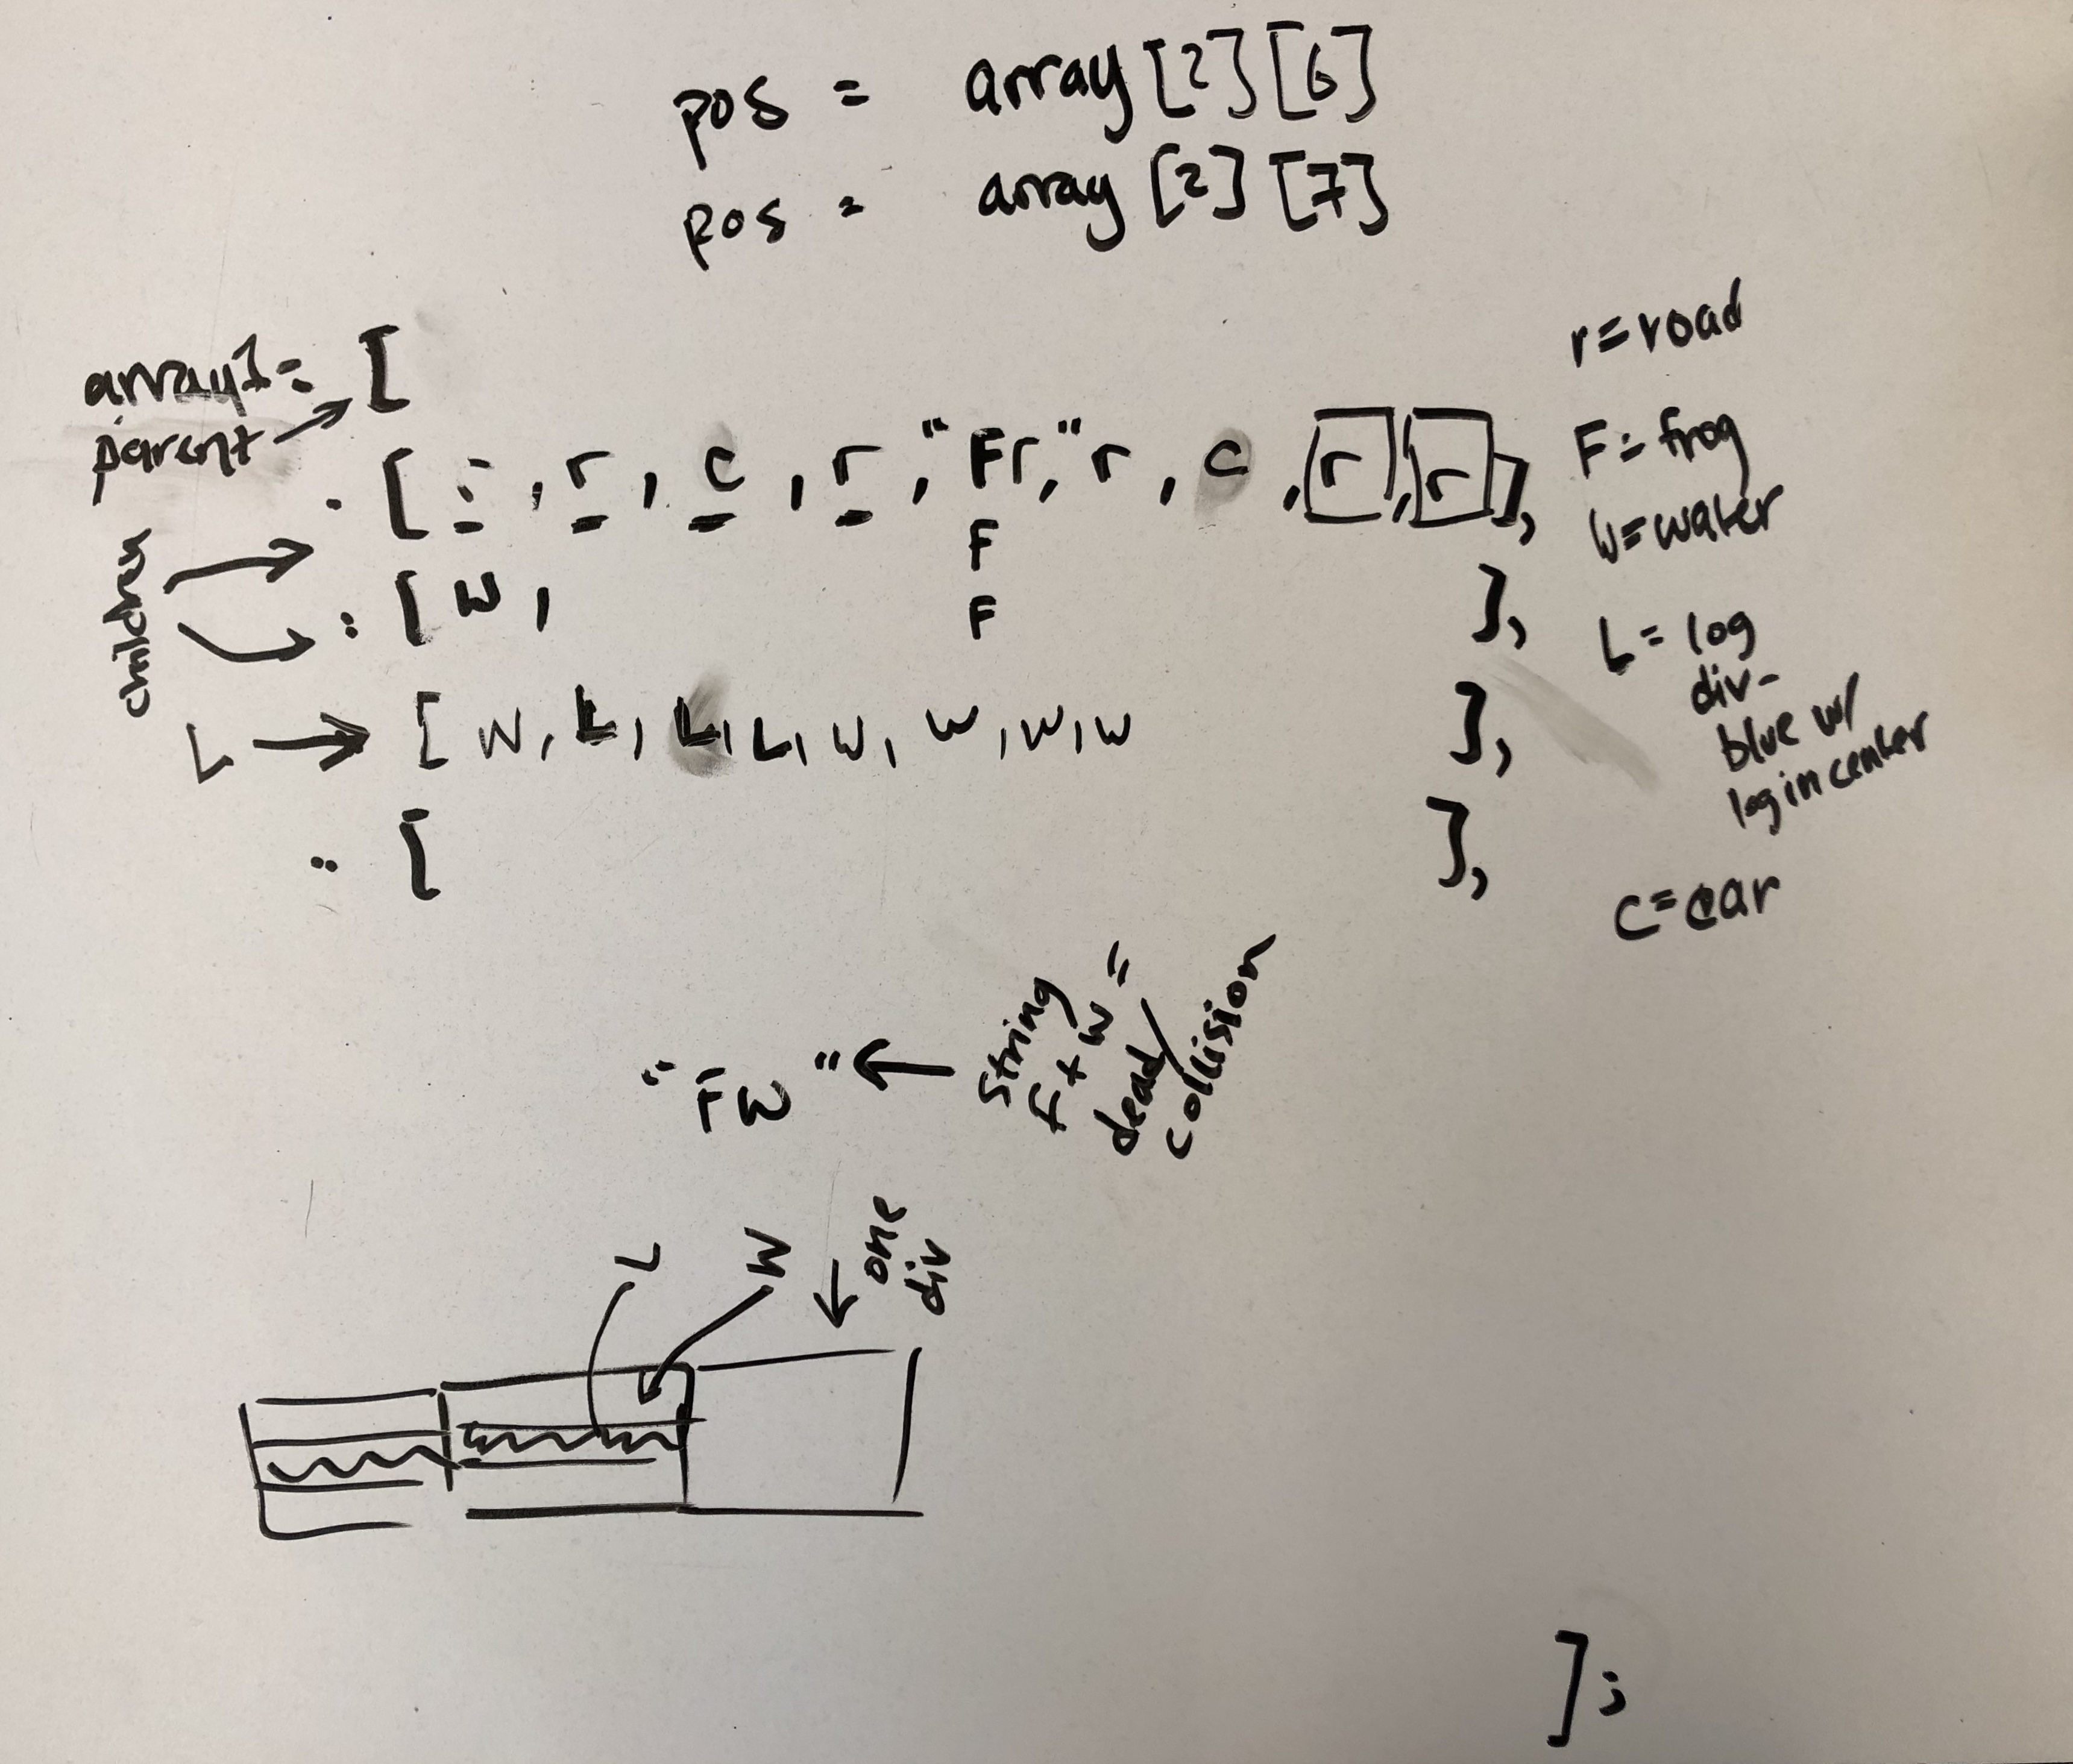 pos = array [2] [6]
pos = array [2] [7]
array1 = [
parent
[ : , r , c , r , "Fr," r , c , r , r ],
F
[ W , ],
F
children
L → [ W, L, L, L, W, W, W, W ],
[ ],
r = road
F = frog
W = water
L = log
div-
blue w/
log in center
C = car
"FW" ←
string
F + W =
dead/
collision
L
W
one
div
];